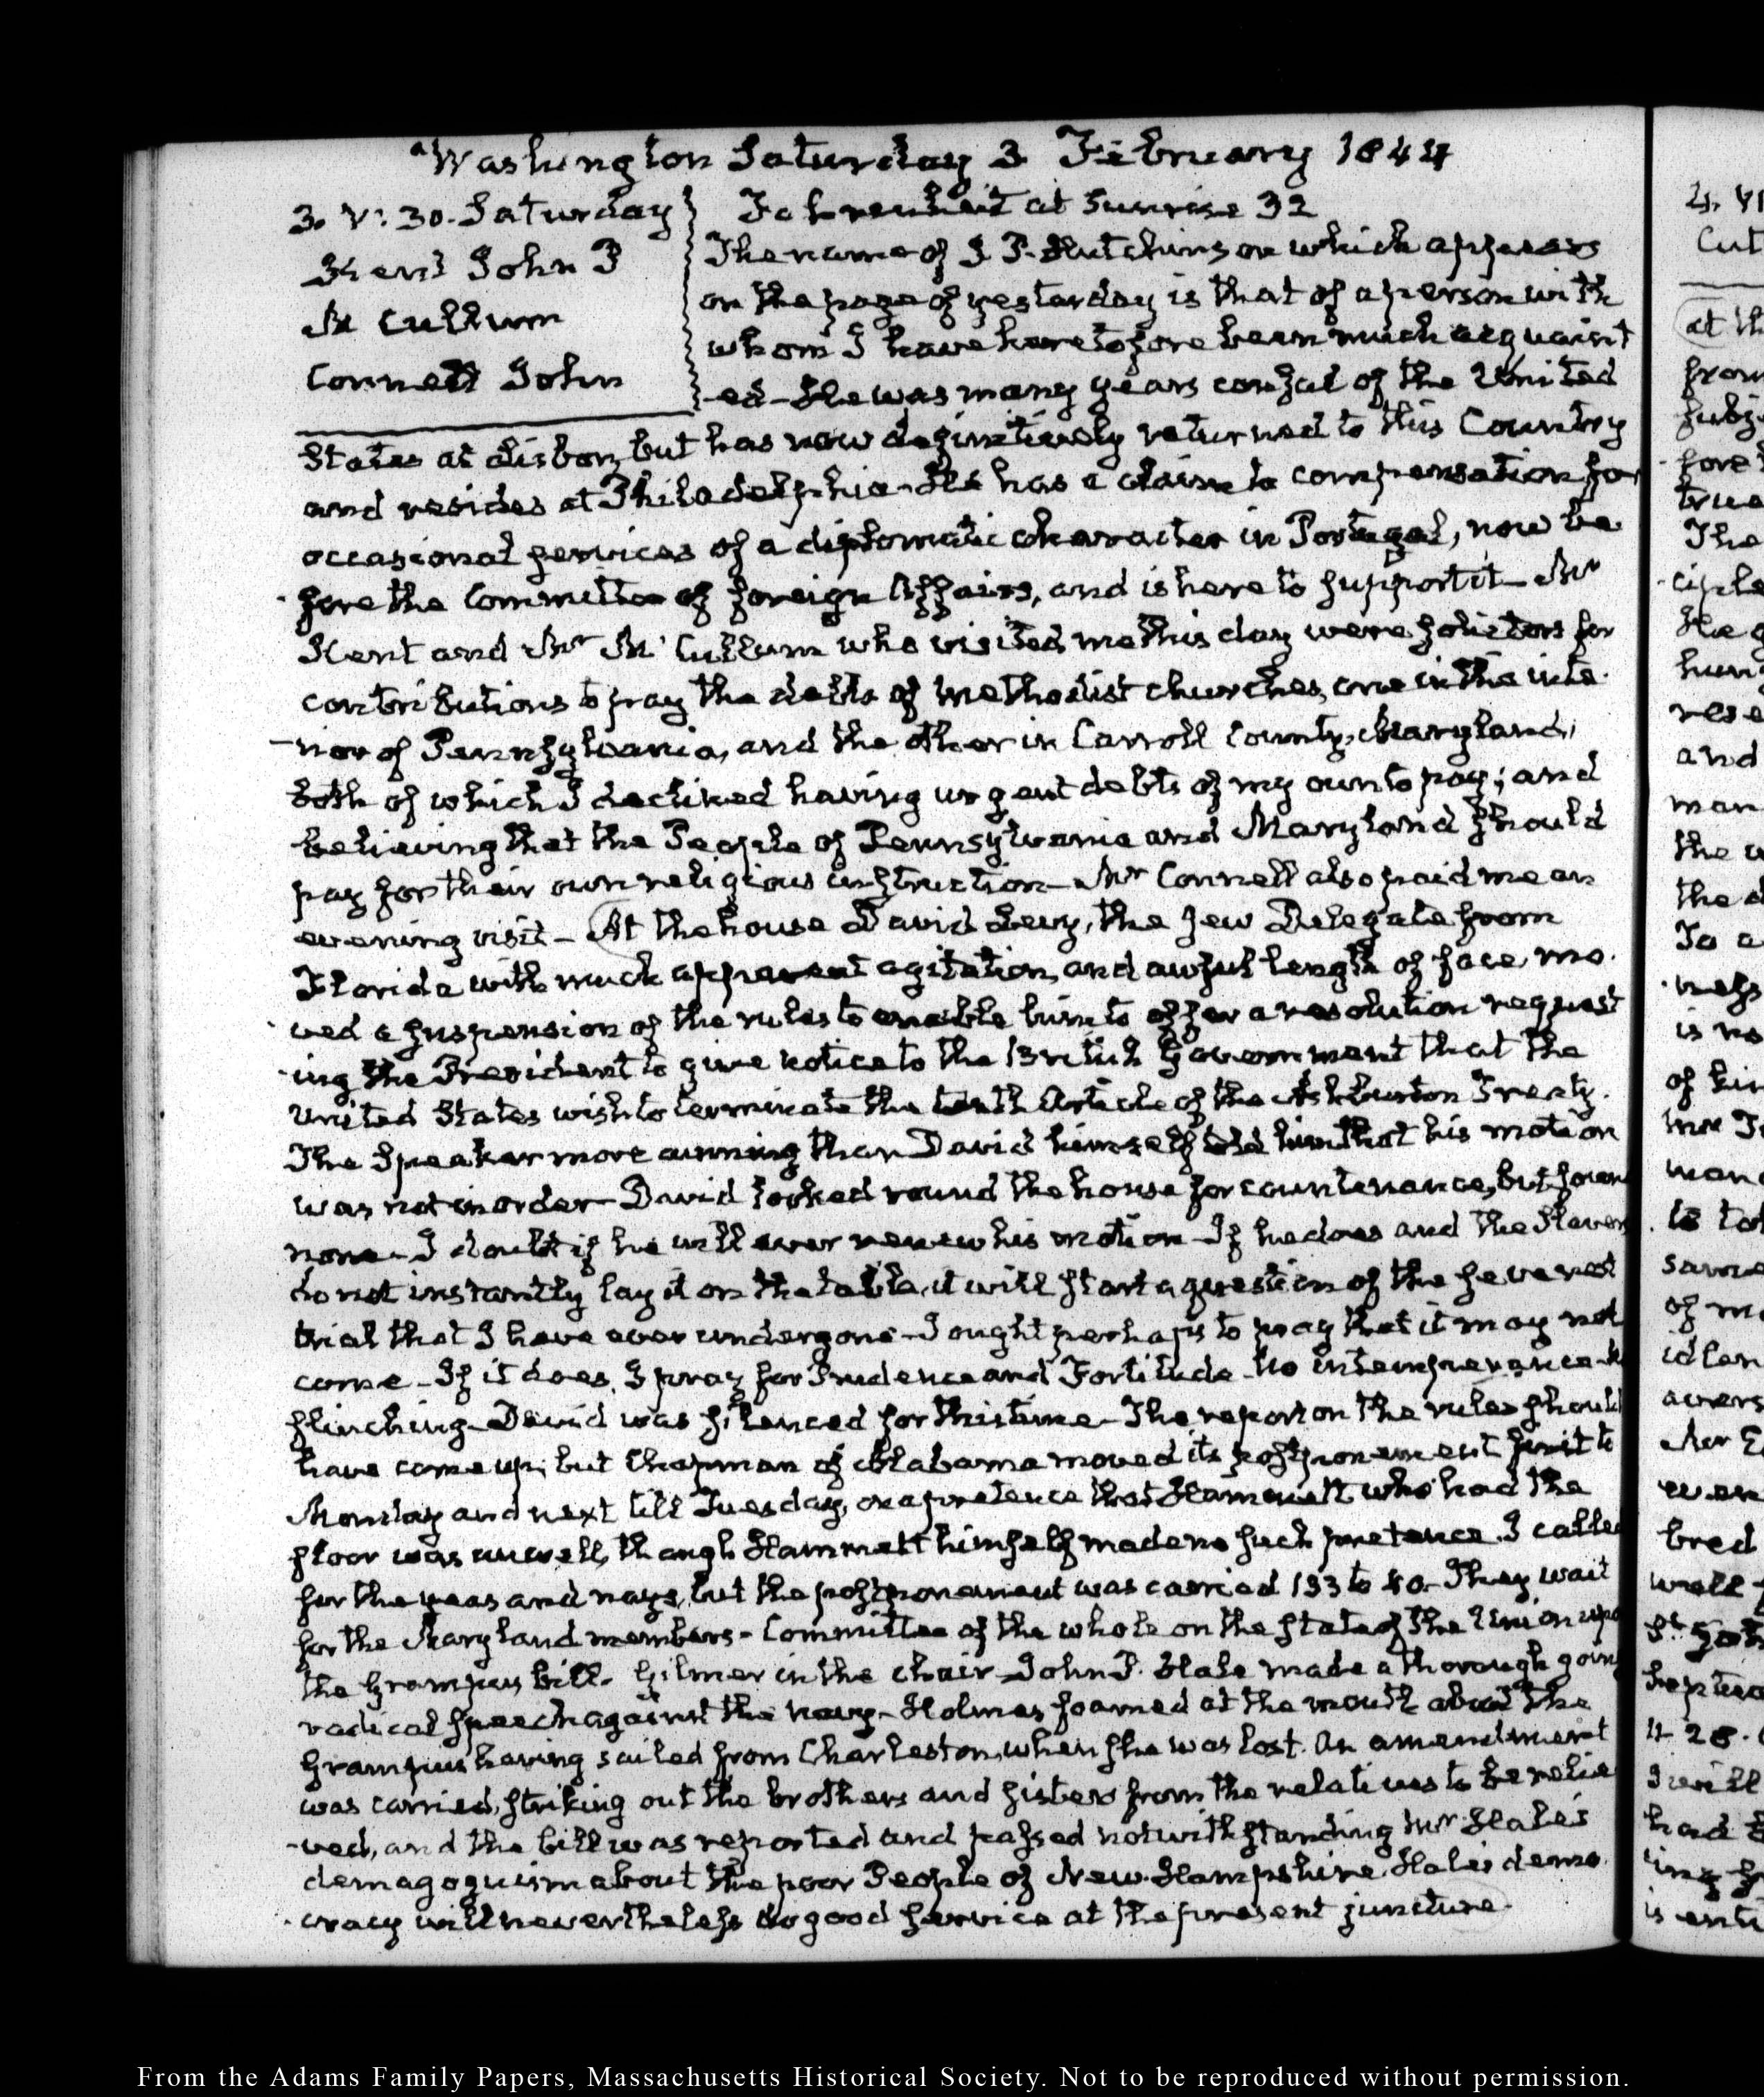 Washington Saturday 3 February 1844
3. V: 30. Saturday
Kent John P
Mc Cullum
Connell John
Fahrenheit at Sunrise 32
The name of I P. Hutchinson which appears
on the page of yesterday is that of a person with
whom I have heretofore been much acquaint
-ed - He was many years consul of the United
States at Lisbon, but has now definitively returned to this Country
and resides at Philadelphia - He has a claim to compensation for
occasional services of a diplomatic character in Portugal, now be
-fore the Committee of foreign Affairs, and is here to support it - Mr
Kent and Mr Mc Cullum who visited me this day were solicitors for
contributions to pay the debts of Methodist churches, one in the inte-
-rior of Pennsylvania, and the other in Carroll County, Maryland,
both of which I declined having urgent debts of my own to pay; and
believing that the People of Pennsylvania and Maryland should
pay for their own religious instruction - Mr Connell also paid me an
evening visit - At the house David Levy, the Jew Delegate from
Florida with much apparent agitation, and awful length of face, mo-
-ved a suspension of the rules to enable him to offer a resolution request
-ing the President to give notice to the British Government that the
United States wish to terminate the tenth Article of the Ashburton Treaty.
The Speaker more cunning than David himself told him that his motion
was not in order - David looked round the house for countenance, but foun
none - I doubt if he will ever renew his motion - If he does and the Slavers
do not instantly lay it on the table, it will start a question of the severest
trial that I have ever undergone - I ought perhaps to pray that it may not
come - If it does, I pray for Prudence and Fortitude - No intemperance -
flinching - David was silenced for this time - The report on the rules should
have come up, but Chapman of Alabama moved its postponement first to
Monday and next till Tuesday, on a pretence that Hammett who had the
floor was unwell, though Hammett himself made no such pretence. I called
for the yeas and nays, but the postponement was carried 133 to 40 - They wait
for the Maryland members - Committee of the whole on the state of the Union upo
the Grampus bill. Gilmer in the chair - John P. Hale made a thorough going
radical speech against the navy - Holmes foamed at the mouth about the
Grampus having sailed from Charleston, when she was lost. An amendment
was carried, striking out the brothers and sisters from the relatives to be relie
-ved, and the bill was reported and passed notwithstanding Mr Hale's
demagoguism about the poor People of New-Hampshire. Hale's demo
-cracy will nevertheless do good service at the present juncture.
From the Adams Family Papers, Massachusetts Historical Society. Not to be reproduced without permission.